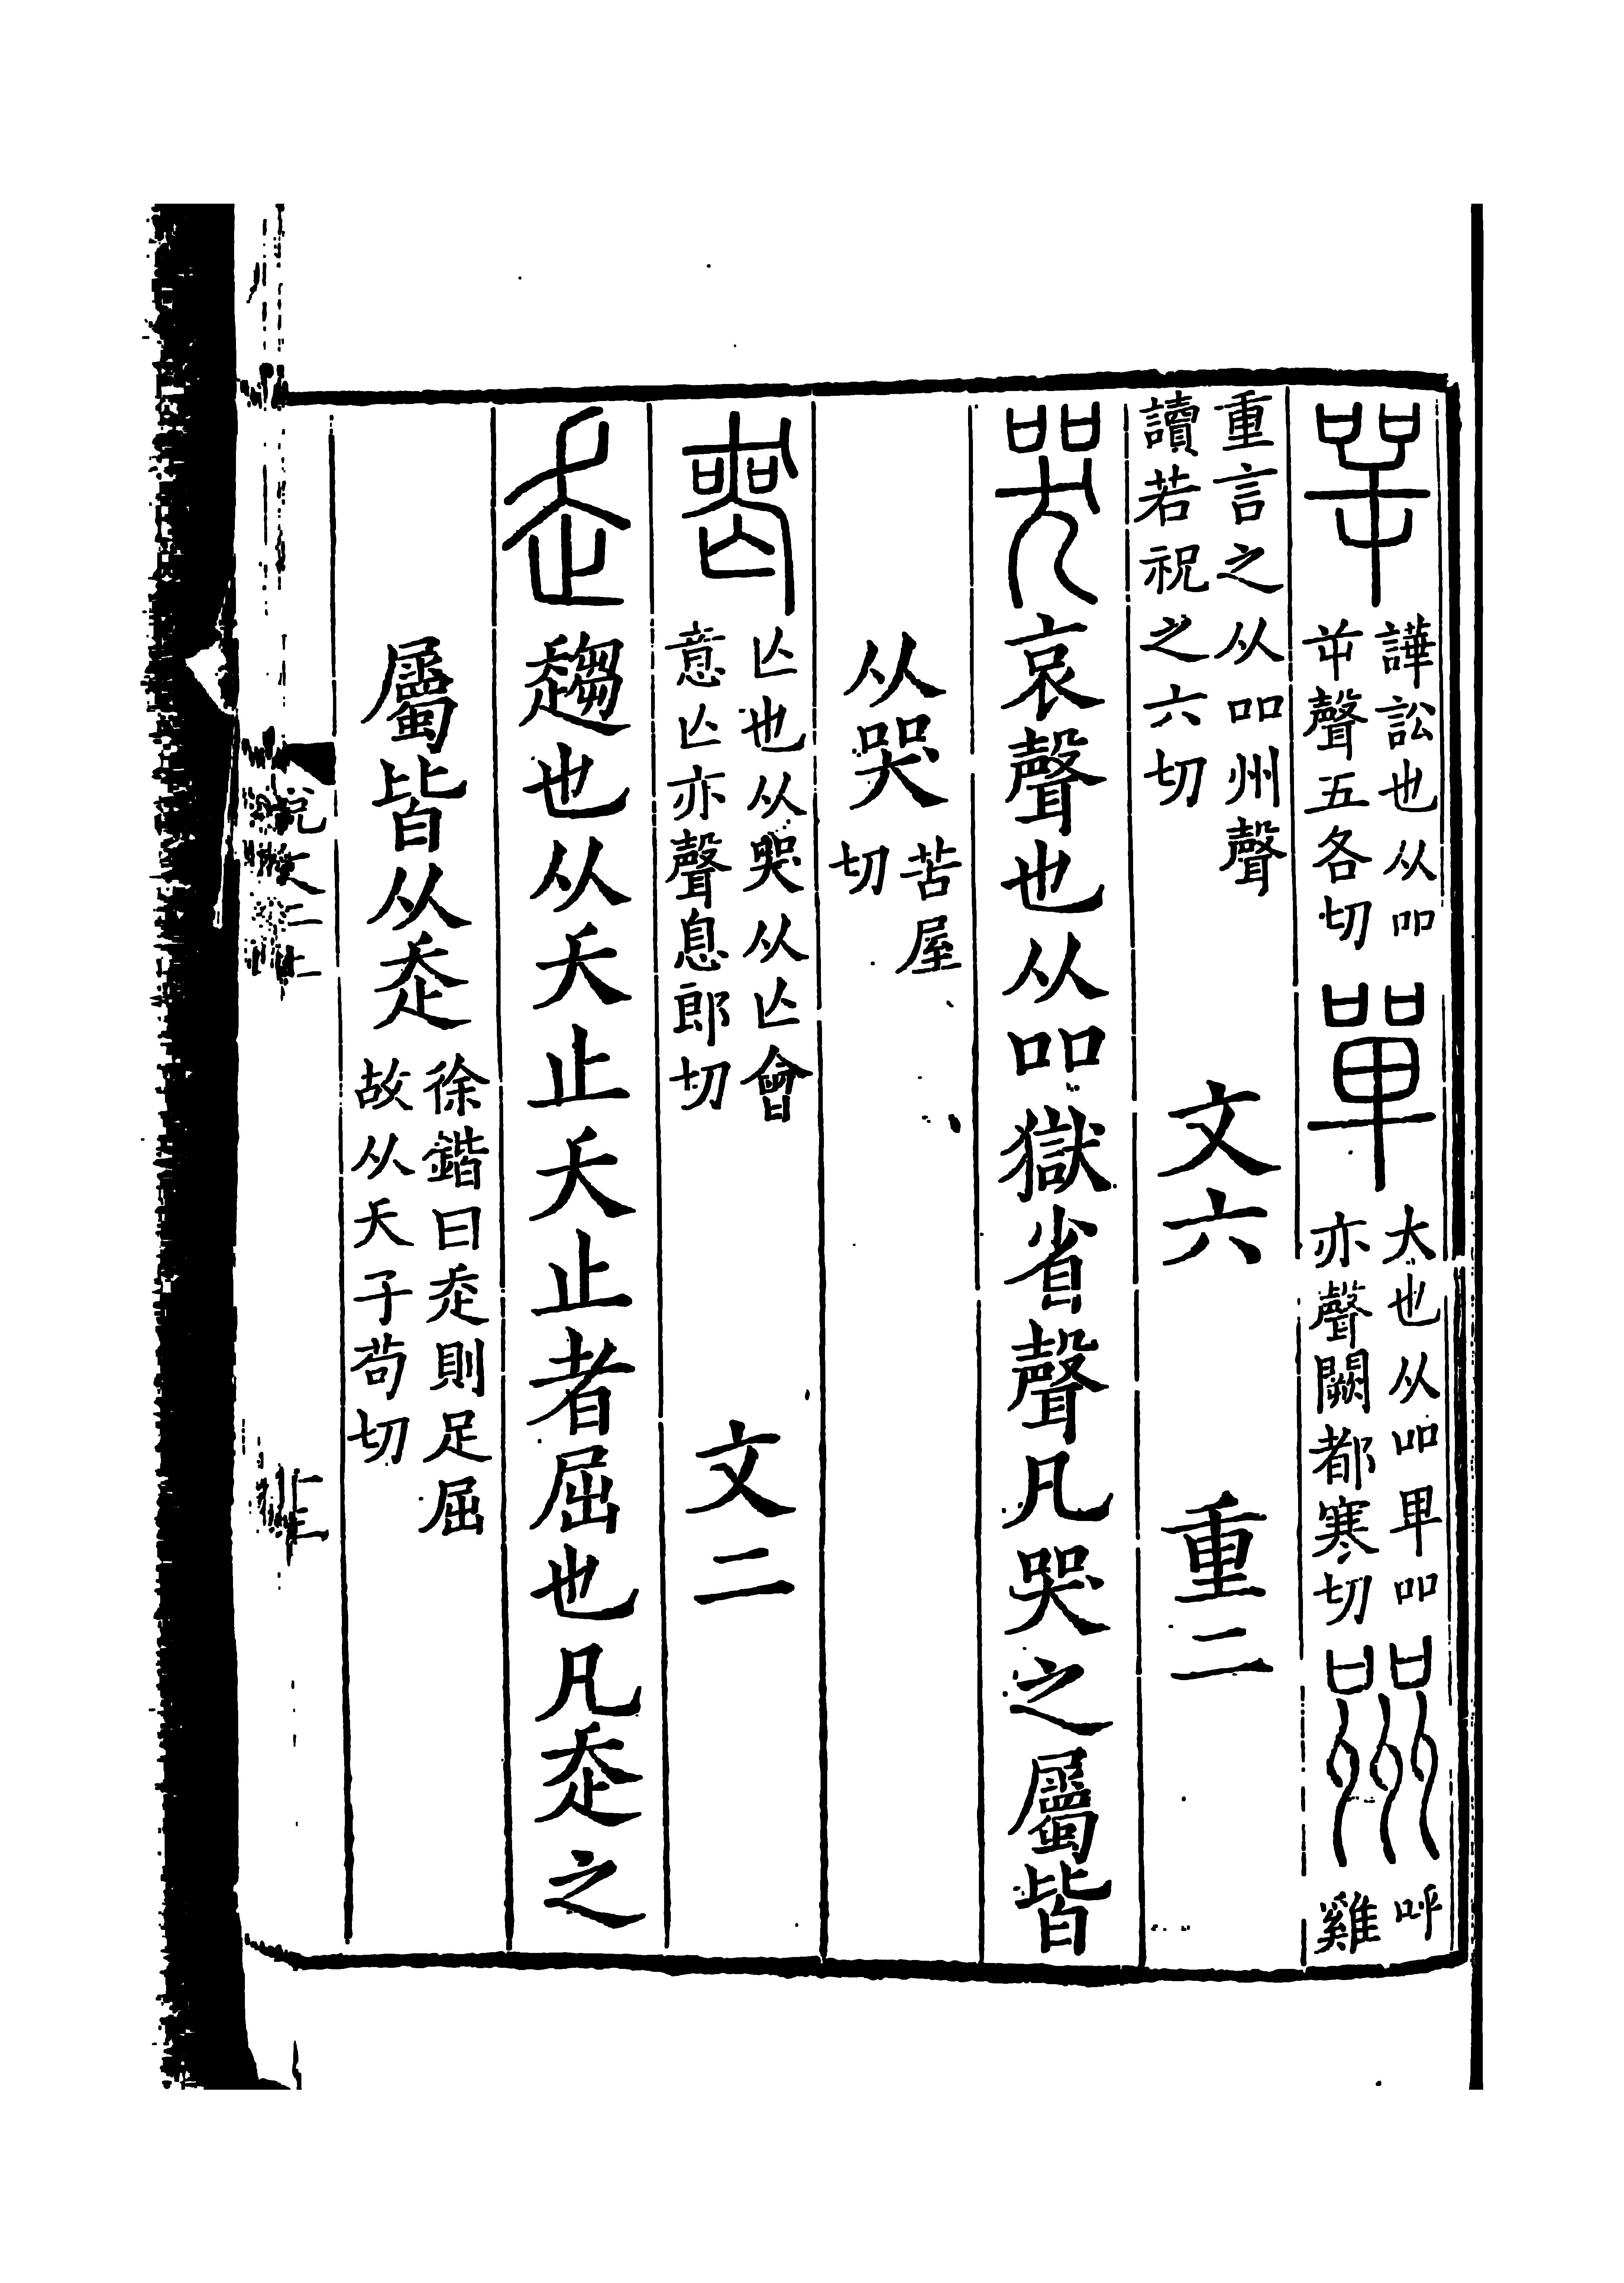 㖾譁訟也从吅屰聲五各切單大也从吅甲吅亦聲闕都寒切喌呼雞
重言之从吅州聲讀若祝之六切　文六　重二
哭哀聲也从吅獄省聲凡哭之屬皆
从哭苦屋切
喪亾也从哭从亾會意亾亦聲息郎切　文二
走趨也从夭止夭止者屈也凡走之
屬皆从走徐鍇曰走則足屈故从夭子苟切
說文二上